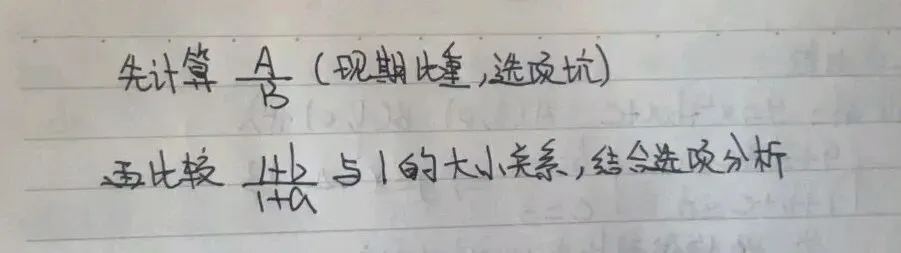 先计算 A/B (现期比重,选项坑)
再比较 1+b/1+a 与1的大小关系,结合选项分析